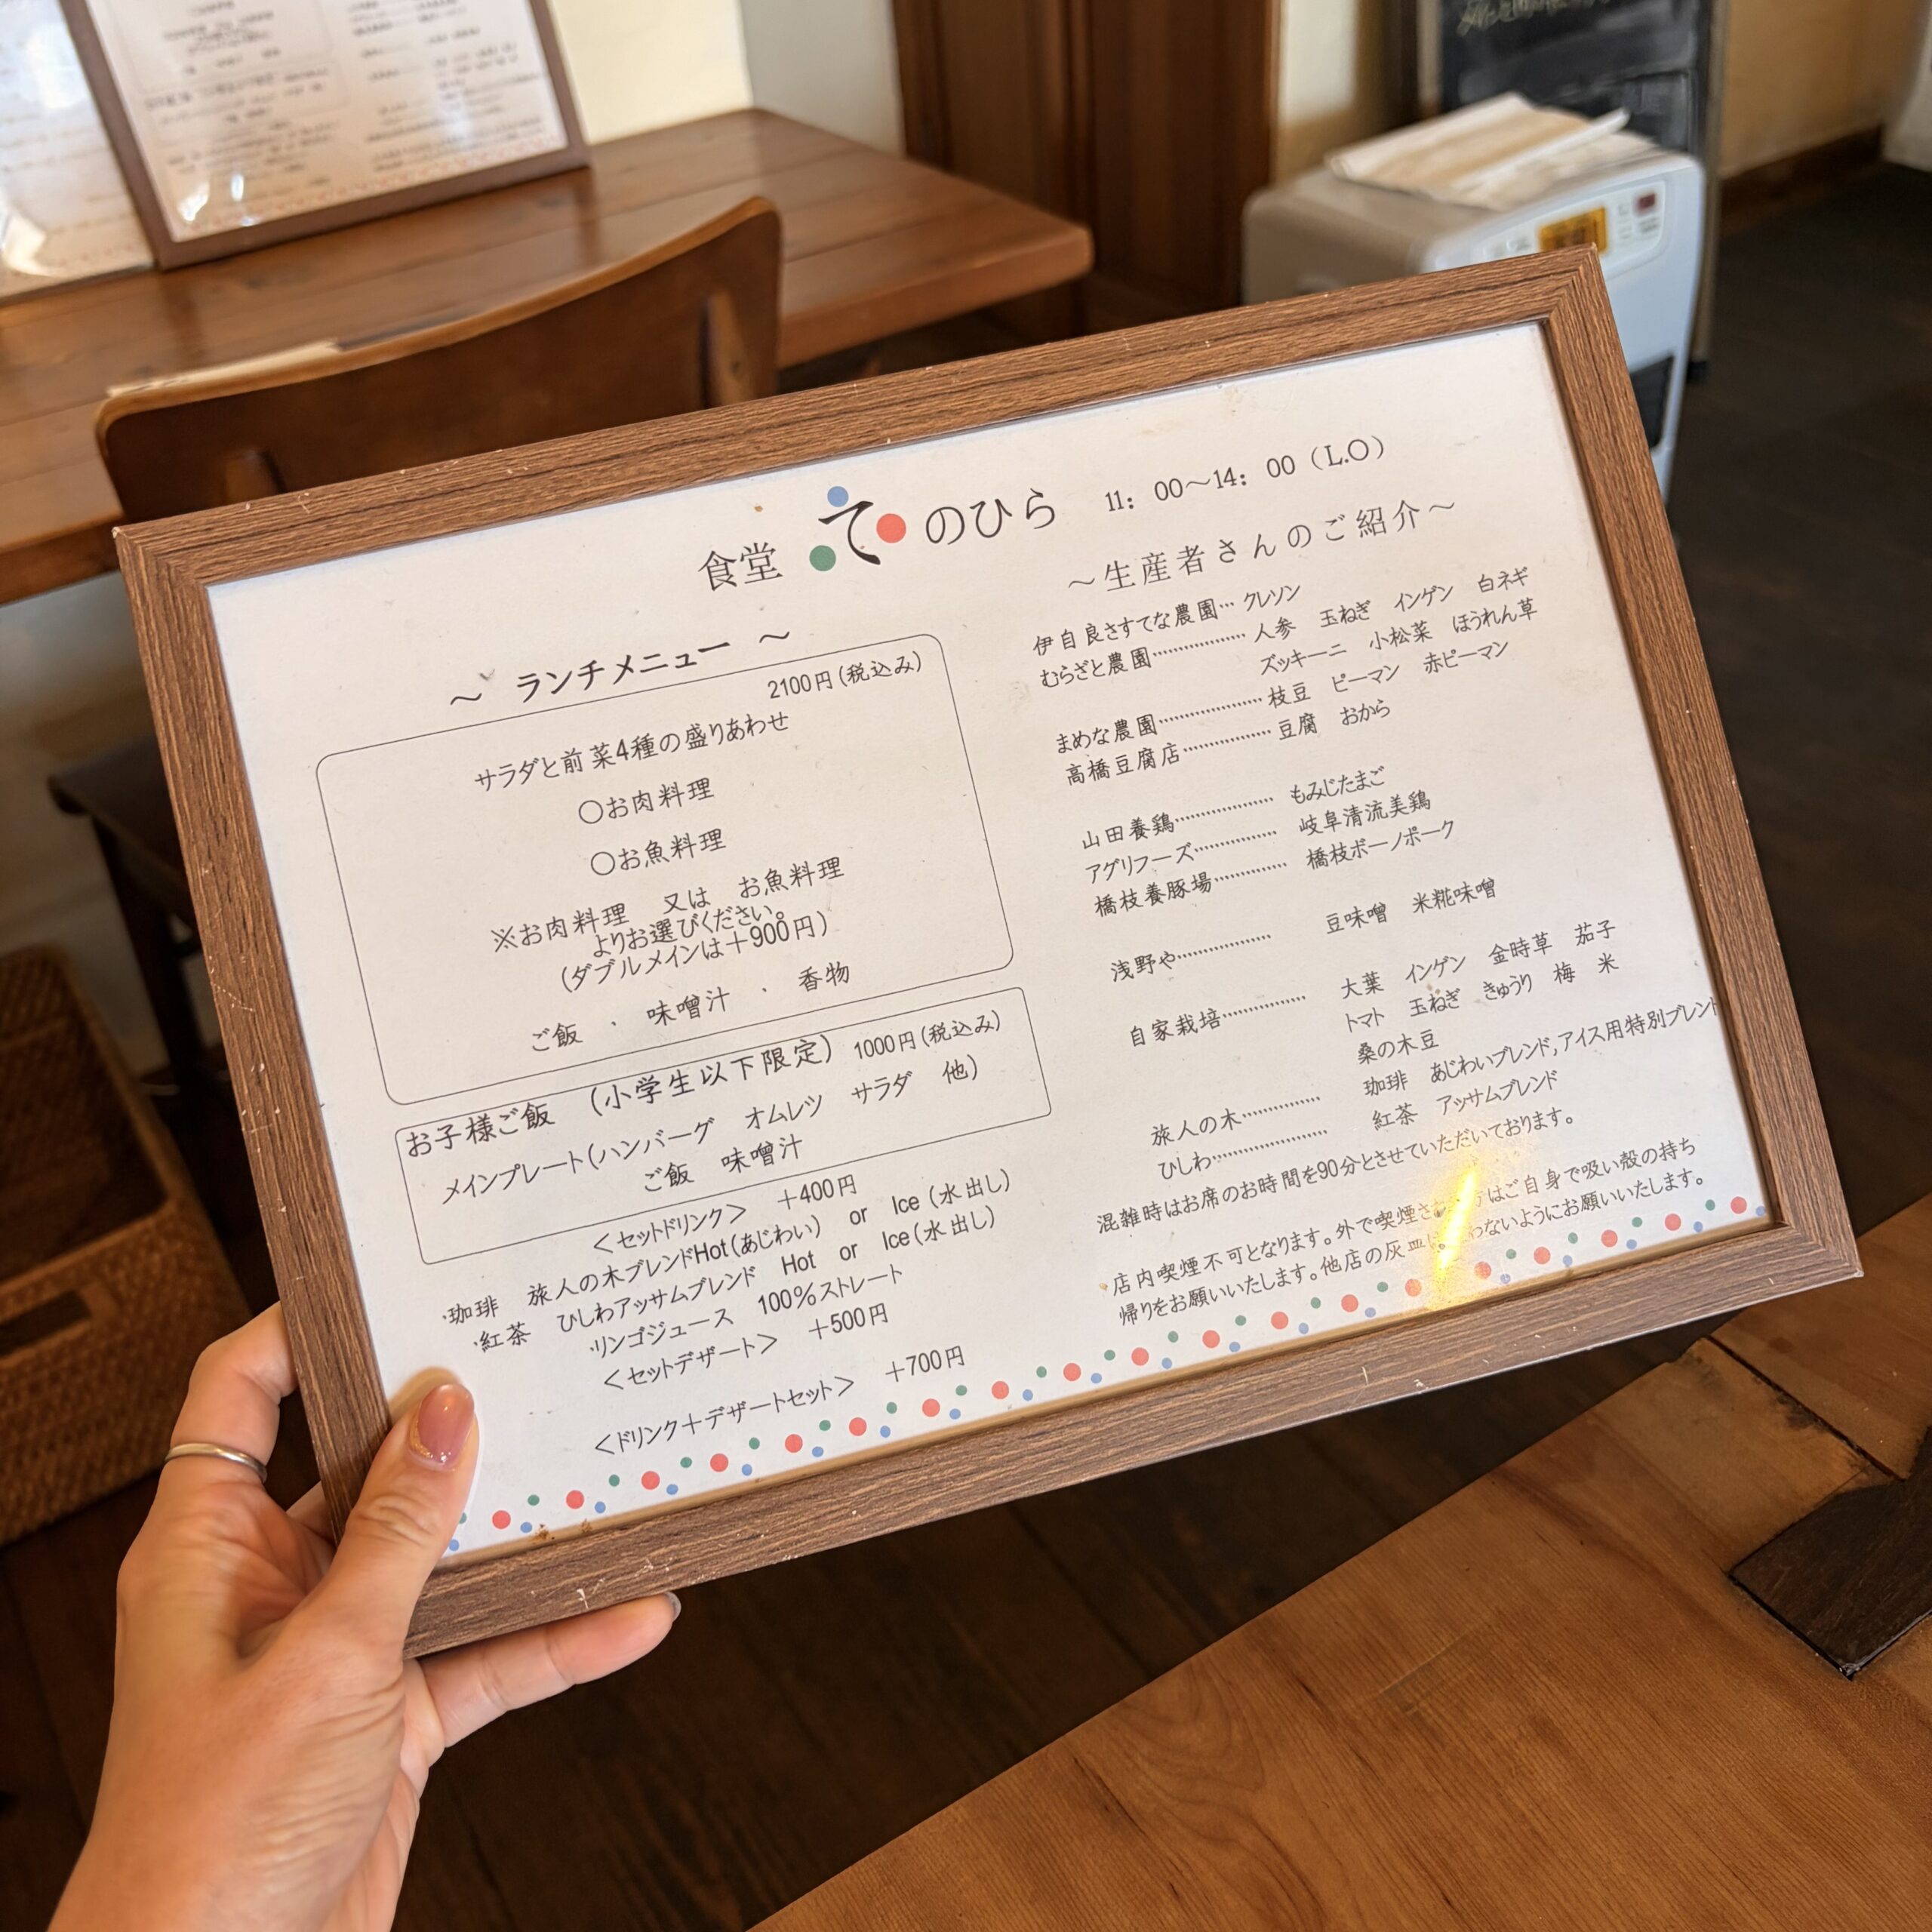 食堂 てのひら 11:00〜14:00(L.O)
〜 ランチメニュー 〜
2100円(税込み)
サラダと前菜4種の盛りあわせ
○お肉料理
○お魚料理
※お肉料理 又は お魚料理
よりお選びください。
(ダブルメインは+900円)
ご飯 ・ 味噌汁 ・ 香物
お子様ご飯 (小学生以下限定) 1000円(税込み)
メインプレート(ハンバーグ オムレツ サラダ 他)
ご飯 味噌汁
<セットドリンク> +400円
・珈琲 旅人の木ブレンドHot(あじわい) or Ice(水出し)
・紅茶 ひしわアッサムブレンド Hot or Ice(水出し)
・リンゴジュース 100%ストレート
<セットデザート> +500円
<ドリンク+デザートセット> +700円
〜生産者さんのご紹介〜
伊自良さすてな農園… クレソン
むらざと農園……………… 人参 玉ねぎ インゲン 白ネギ
ズッキーニ 小松菜 ほうれん草
まめな農園……………… 枝豆 ピーマン 赤ピーマン
高橋豆腐店…………… 豆腐 おから
山田養鶏……………… もみじたまご
アグリフーズ…………… 岐阜清流美鶏
橋枝養豚場…………… 橋枝ボーノポーク
浅野や……………… 豆味噌 米糀味噌
自家栽培…………… 大葉 インゲン 金時草 茄子
トマト 玉ねぎ きゅうり 梅 米
桑の木豆
旅人の木…………… 珈琲 あじわいブレンド,アイス用特別ブレンド
ひしわ……………… 紅茶 アッサムブレンド
混雑時はお席のお時間を90分とさせていただいております。
店内喫煙不可となります。外で喫煙さ はご自身で吸い殻の持ち
帰りをお願いいたします。他店の灰皿 わないようにお願いいたします。